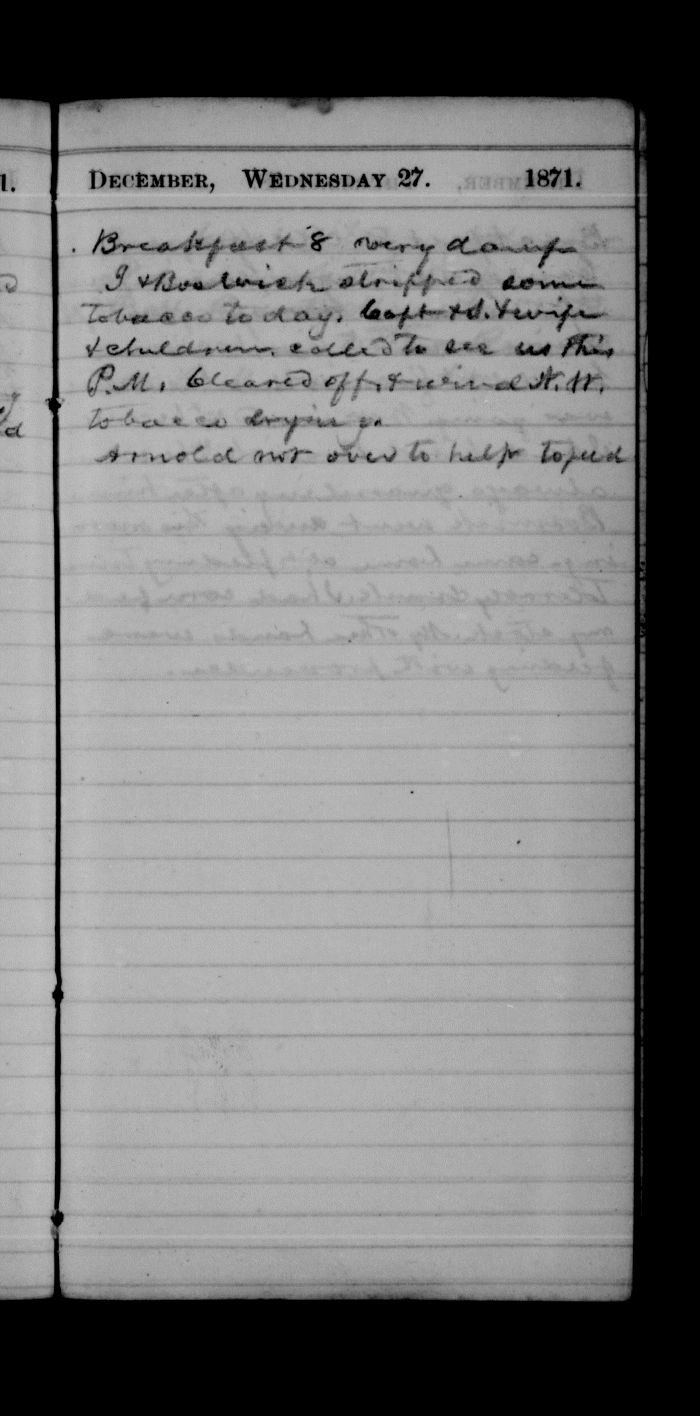 1.
DECEMBER, WEDNESDAY 27. 1871.
Breakfast 8 very damp
I & Bostwick stripped some
tobacco to day. Capt & wife
& children. called to see us this
P.M. Cleared off. & wind N.W.
tobacco drying.
Arnold not over to help to feed
d